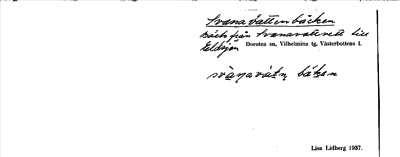 Svanavattenbäcken
Bäck från Svanavattnet till
Eldsjön Dorotea sn, Vilhelmina tg, Västerbottens l.
bäkən
Lisa Lidberg 1937.